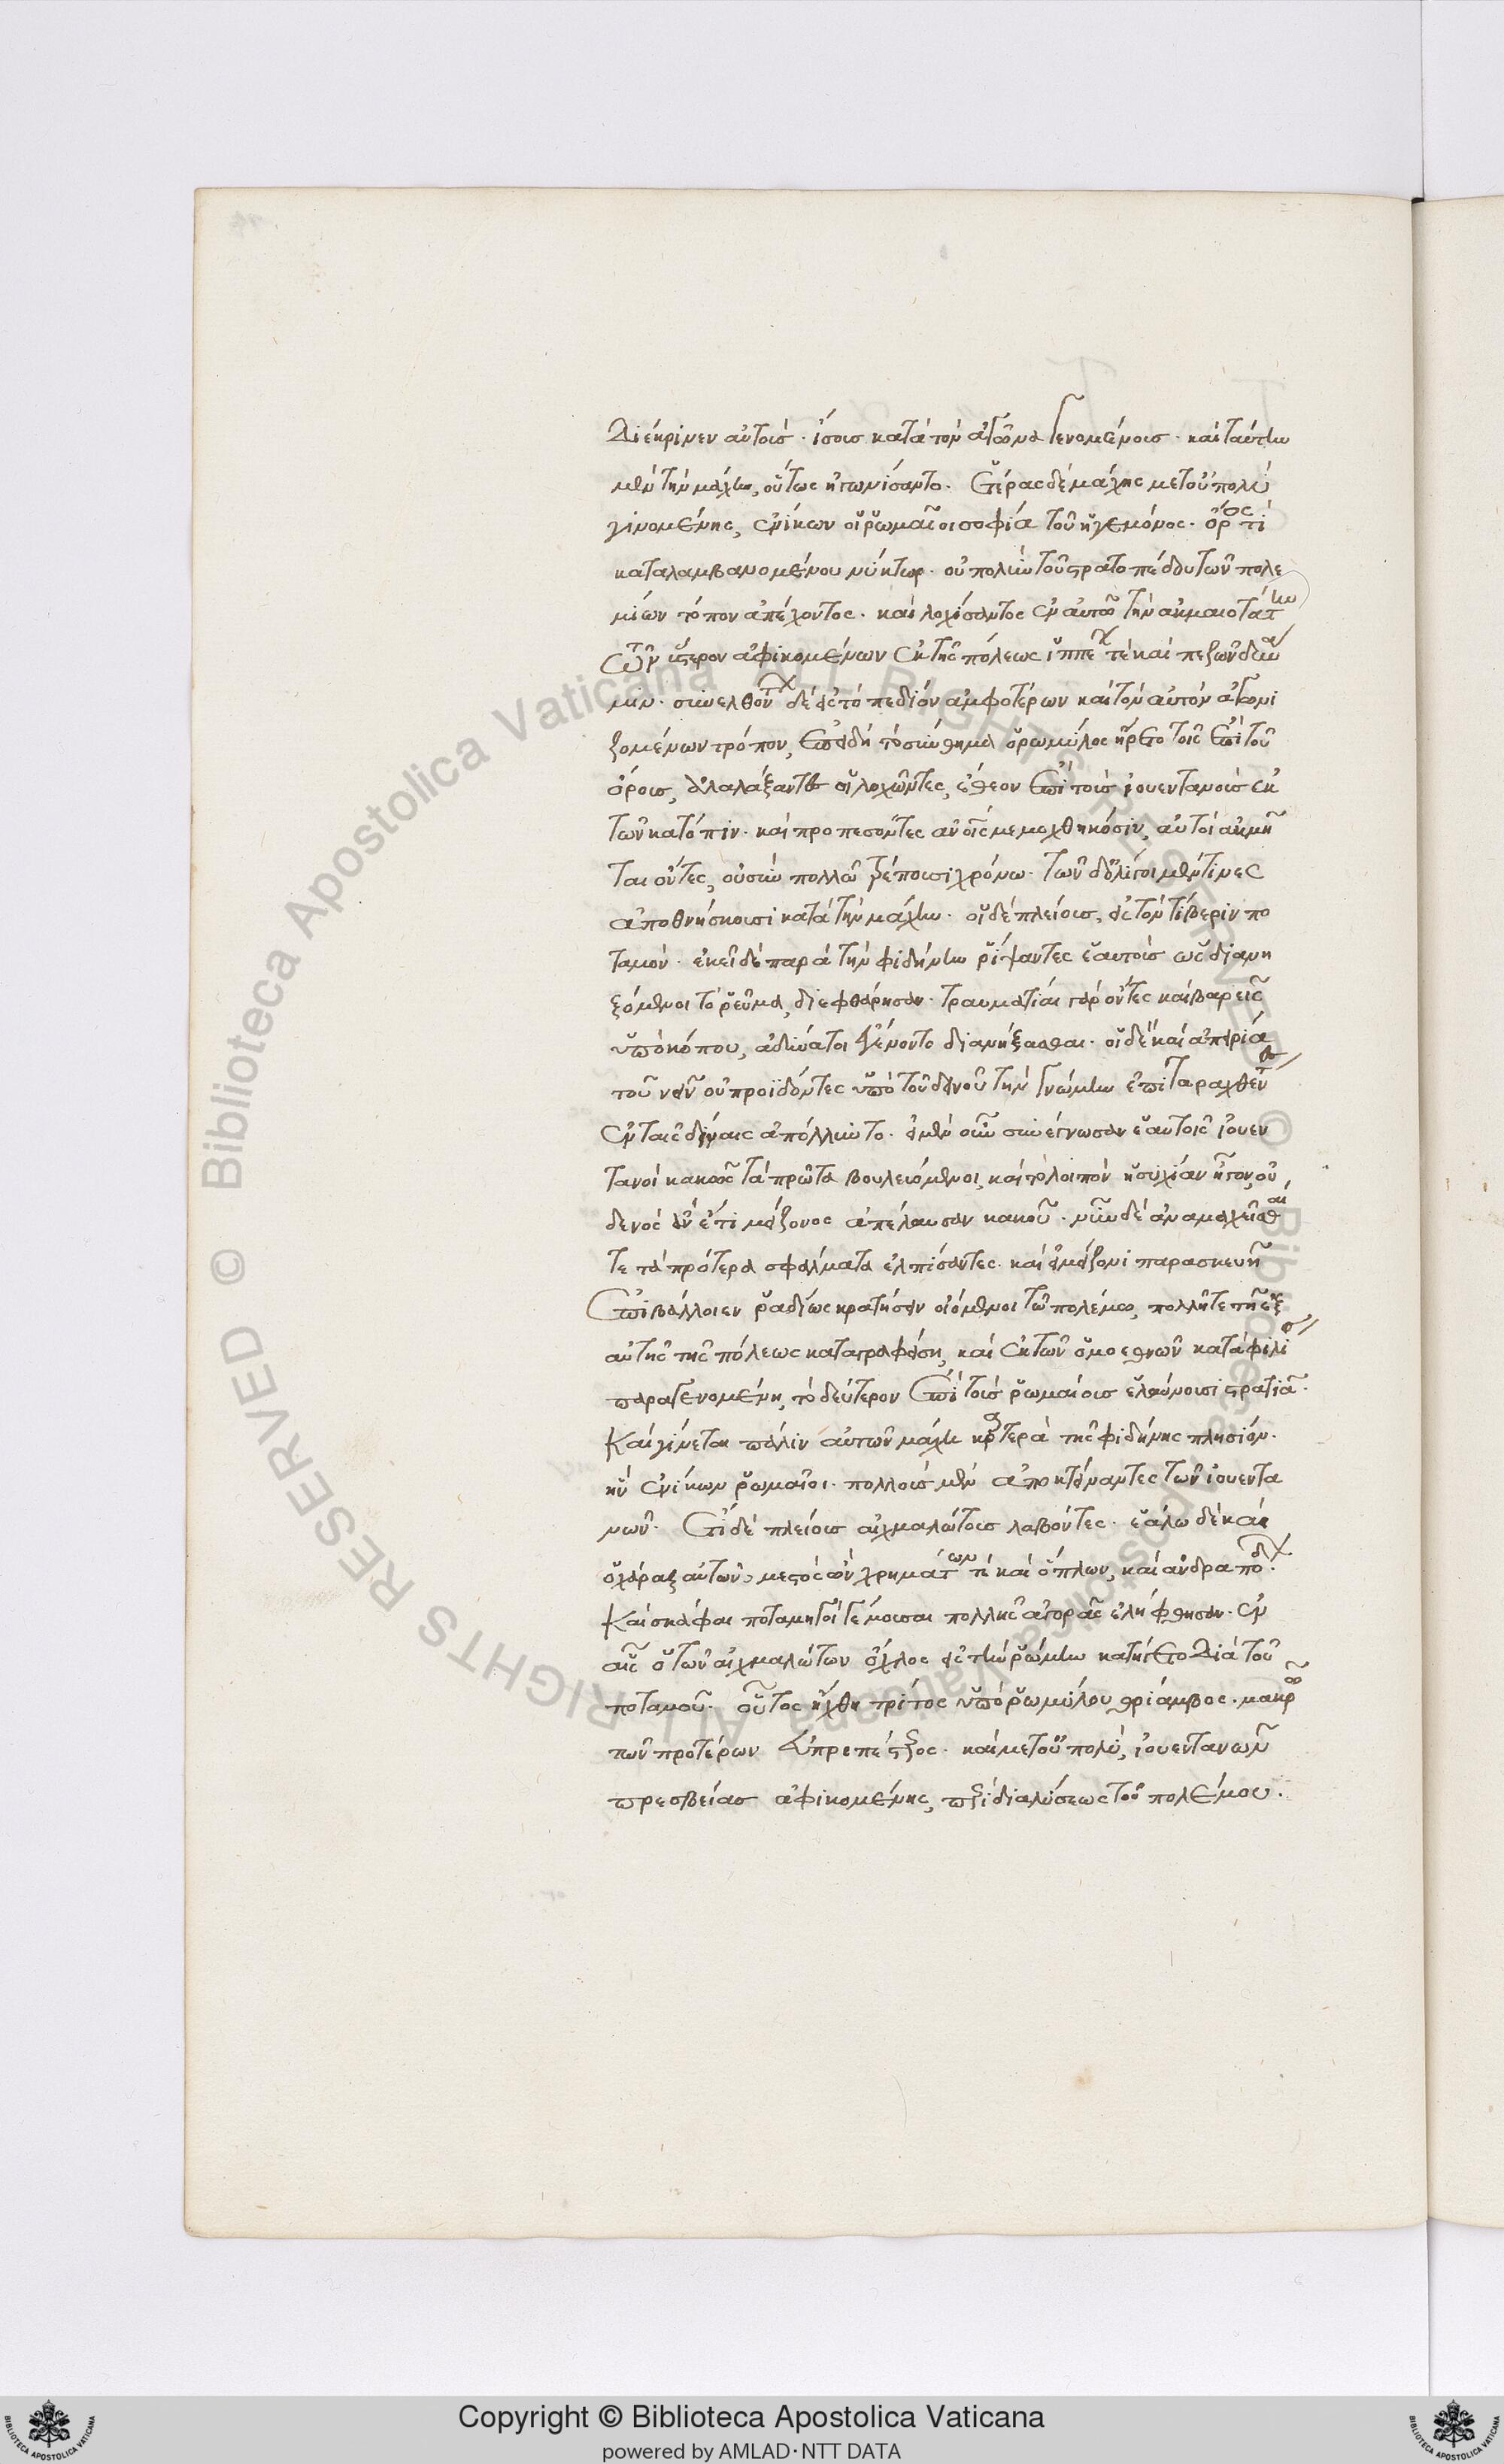 διέκρινεν αὐτοὺς ἴσους κατὰ τὸν ἀγῶνα γενομένους· καὶ ταύτην
μὲν τὴν μάχην, οὕτως ἠγωνίσαντο. Ἑτέρας δὲ μάχης μετοὐπολὺ
γινομένης, ἐνίκων οἱ ῥωμαῖοι σοφία τοῦ ἡγεμόνος· ὄρος τι
καταλαμβανομένου νύκτωρ· οὐ πολὺ τοῦ στρατοπέδου τῶν πολε
μίων τόπον ἀπέχοντος· καὶ λοχίσαντος ἐν αὐτῶ τὴν ἀκμαιοτάτην
τῶν ὕστερον ἀφικομένων ἐκ τῆς πόλεως ἱππέων τὲ καὶ πεζῶν δύνα
μιν· συνελθόντων δὲ εἰς τὸ πεδίον ἀμφοτέρων καὶ τὸν αὐτὸν ἀγωνι
ζομένων τρόπον, ἐπειδὴ τὸ σύνθημα ὁ ῥωμύλος ἦρε τοῖς ἐπὶ τοῦ
ὄρους, ἀλαλάξαντες οἱ λοχῶντες, ἔθεον ἐπὶ τοὺς ἰουεντανοὺς ἐκ
τῶν κατόπιν· καὶ προπεσόντες ἀνοῖς μεμοχθηκόσιν, αὐτοὶ ἀκμῆ
ται ὄντες, οὐ σὺν πολλῶ τρέπουσι χρόνω· τῶν δ' ὀλίγοι μέν τινες
ἀποθνήσκουσι κατὰ τὴν μάχην· οἱ δὲ πλείους, εἰς τὸν τίβεριν πο
ταμόν· ἐκεῖ δὲ παρὰ τὴν φιδήνην ῥίψαντες ἑαυτοὺς ὡς διανη
ξόμενοι τὸ ῥεῦμα, διεφθάρησαν· τραυματίαι γὰρ ὄντες καὶ βαρεῖς
ὑπὸ κόπου, ἀδύνατοι ἐγένοντο διανήξασθαι· οἱ δὲ καὶ ἀπειρία
τοῦ νεῖν οὐ προϊδόντες ὑπὸ τοῦ δεινοῦ τὴν γνώμην ἐπιταραχθέντες
ἐν ταῖς δίναις ἀπόλλυντο. εἰ μὲν οὖν συνέγνωσαν ἑαυτοῖς ἰουεν
τανοὶ κακῶς τὰ πρῶτα βουλευόμενοι, καὶ τὸ λοιπὸν ἡσυχίαν ἦγον, οὐ
δενὸς ἂν ἔτι μείζονος ἀπέλαυσαν κακοῦ· νῦν δὲ ἀναμαχεῖσθαι
τε τὰ πρότερα σφάλματα ἐλπίσαντες· καὶ εἰ μείζονι παρασκευῆ
ἐπιβάλλοιεν ῥαδίως κρατήσειν οἰόμενοι τῶ πολέμω, πολλῆ τε τῆ ἐξ
αὐτῆς τῆς πόλεως καταγραφείση, καὶ ἐκ τῶν ὁμοεθνῶν κατὰ φιλί
παραγενομένη, τὸ δεύτερον ἐπὶ τοὺς ῥωμαίους ἐλαύνουσι στρατιᾶ.
Καὶ γίνεται πάλιν αὐτῶν μάχη καρτερὰ τῆς φιδήνης πλησίον·
ἣν ἐνίκων ῥωμαῖοι· πολλοὺς μὲν ἀποκτείναντες τῶν ἰουεντα
νῶν· ἔτι δὲ πλείους αἰχμαλώτους λαβόντες. ἑάλω δὲ καὶ
ὁ χάραξ αὐτῶν· μεστὸς ὢν χρημάτων τὲ καὶ ὅπλων, καὶ ἀνδραπόδων.
Καὶ σκάφαι ποταμηγοὶ γέμουσαι πολλῆς ἀγορᾶς ἐλήφθησαν· ἐν
αἷς ὁ τῶν αἰχμαλώτων ὄχλος εἰς τὴν ῥώμην κατήγετο διὰ τοῦ
ποταμοῦ· οὗτος ἤχθη τρίτος ὑπὸ ῥωμύλου θρίαμβος· μακρῶ
τῶν προτέρων εὐπρεπέστερος· καὶ μετοὐπολὺ, ἰουεντανῶν
πρεσβείας ἀφικομένης, περὶ διαλύσεως τοῦ πολέμου.
Copyright © Biblioteca Apostolica Vaticana
powered by AMLAD·NTT DATA
© Biblioteca Apostolica Vaticana ALL RIGHTS RESERVED